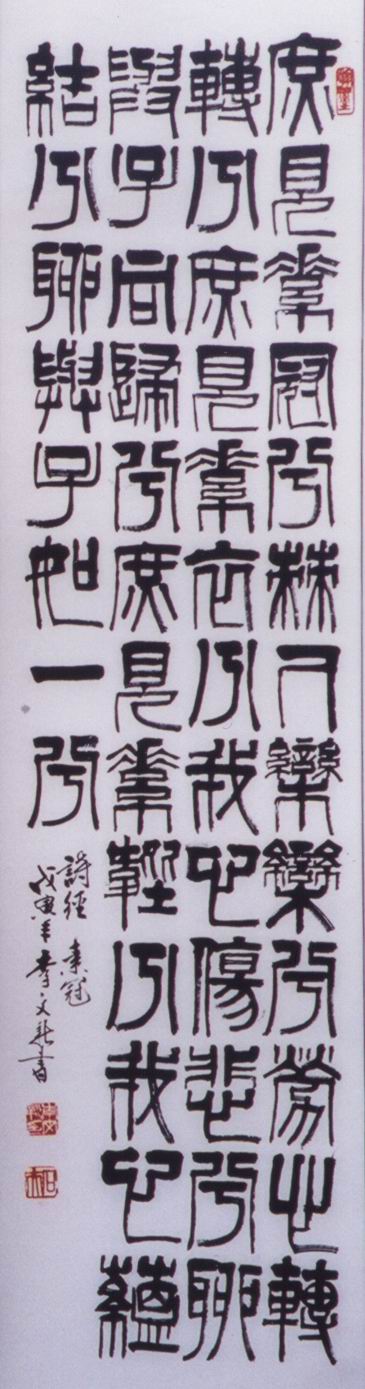 庶見素冠兮棘人欒欒兮勞心轉
轉兮庶見素衣兮我心傷悲兮聊
與子同歸兮庶見素韠兮我心蘊
結兮聊與子如一兮
詩經 素冠
戊寅年 李文新書